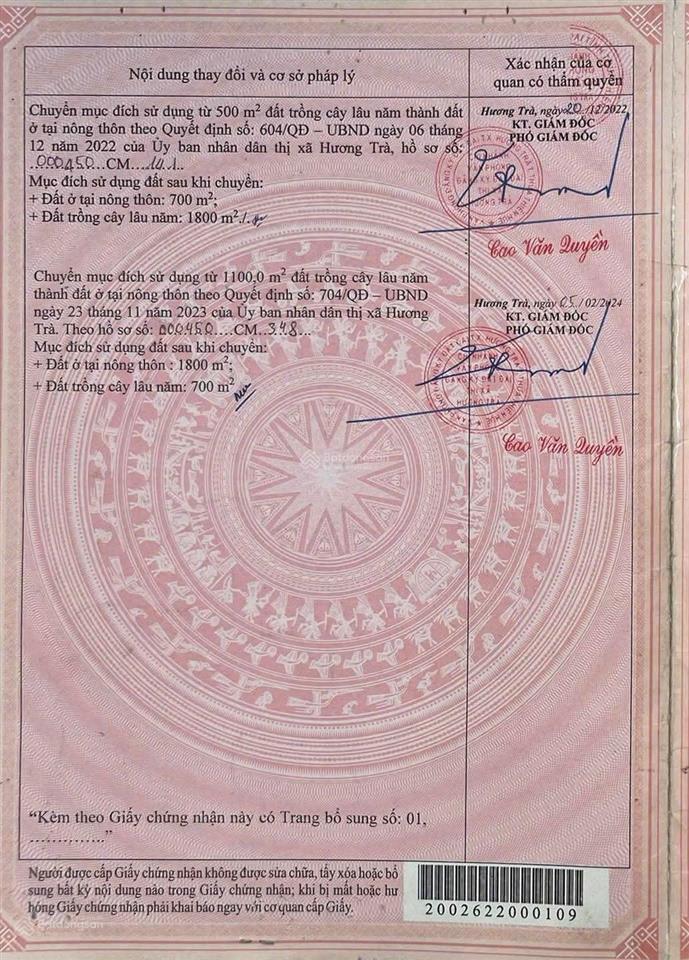 Nội dung thay đổi và cơ sở pháp lý
Xác nhận của cơ
quan có thẩm quyền
Chuyển mục đích sử dụng từ 500 m² đất trồng cây lâu năm thành đất
ở tại nông thôn theo Quyết định số: 604/QĐ – UBND ngày 06 tháng
12 năm 2022 của Ủy ban nhân dân thị xã Hương Trà, hồ sơ số:
000450.CM.141.
Mục đích sử dụng đất sau khi chuyển:
+ Đất ở tại nông thôn: 700 m²;
+ Đất trồng cây lâu năm: 1800 m²./.
Hương Trà, ngày 20./12/2022
KT. GIÁM ĐỐC
PHÓ GIÁM ĐỐC
Cao Văn Quyền
Chuyển mục đích sử dụng từ 1100,0 m² đất trồng cây lâu năm
thành đất ở tại nông thôn theo Quyết định số: 704/QĐ – UBND
ngày 23 tháng 11 năm 2023 của Ủy ban nhân dân thị xã Hương
Trà. Theo hồ sơ số: 000450....CM.348...
Mục đích sử dụng đất sau khi chuyển:
+ Đất ở tại nông thôn : 1800 m²;
+ Đất trồng cây lâu năm: 700 m²
Hương Trà, ngày 05./02/2024
KT. GIÁM ĐỐC
PHÓ GIÁM ĐỐC
Cao Văn Quyền
Batdongsan
“Kèm theo Giấy chứng nhận này có Trang bổ sung số: 01,
..............”
Người được cấp Giấy chứng nhận không được sửa chữa, tẩy xóa hoặc bổ
sung bất kỳ nội dung nào trong Giấy chứng nhận; khi bị mất hoặc hư
hỏng Giấy chứng nhận phải khai báo ngay với cơ quan cấp Giấy.
2002622000109
Batdongsan